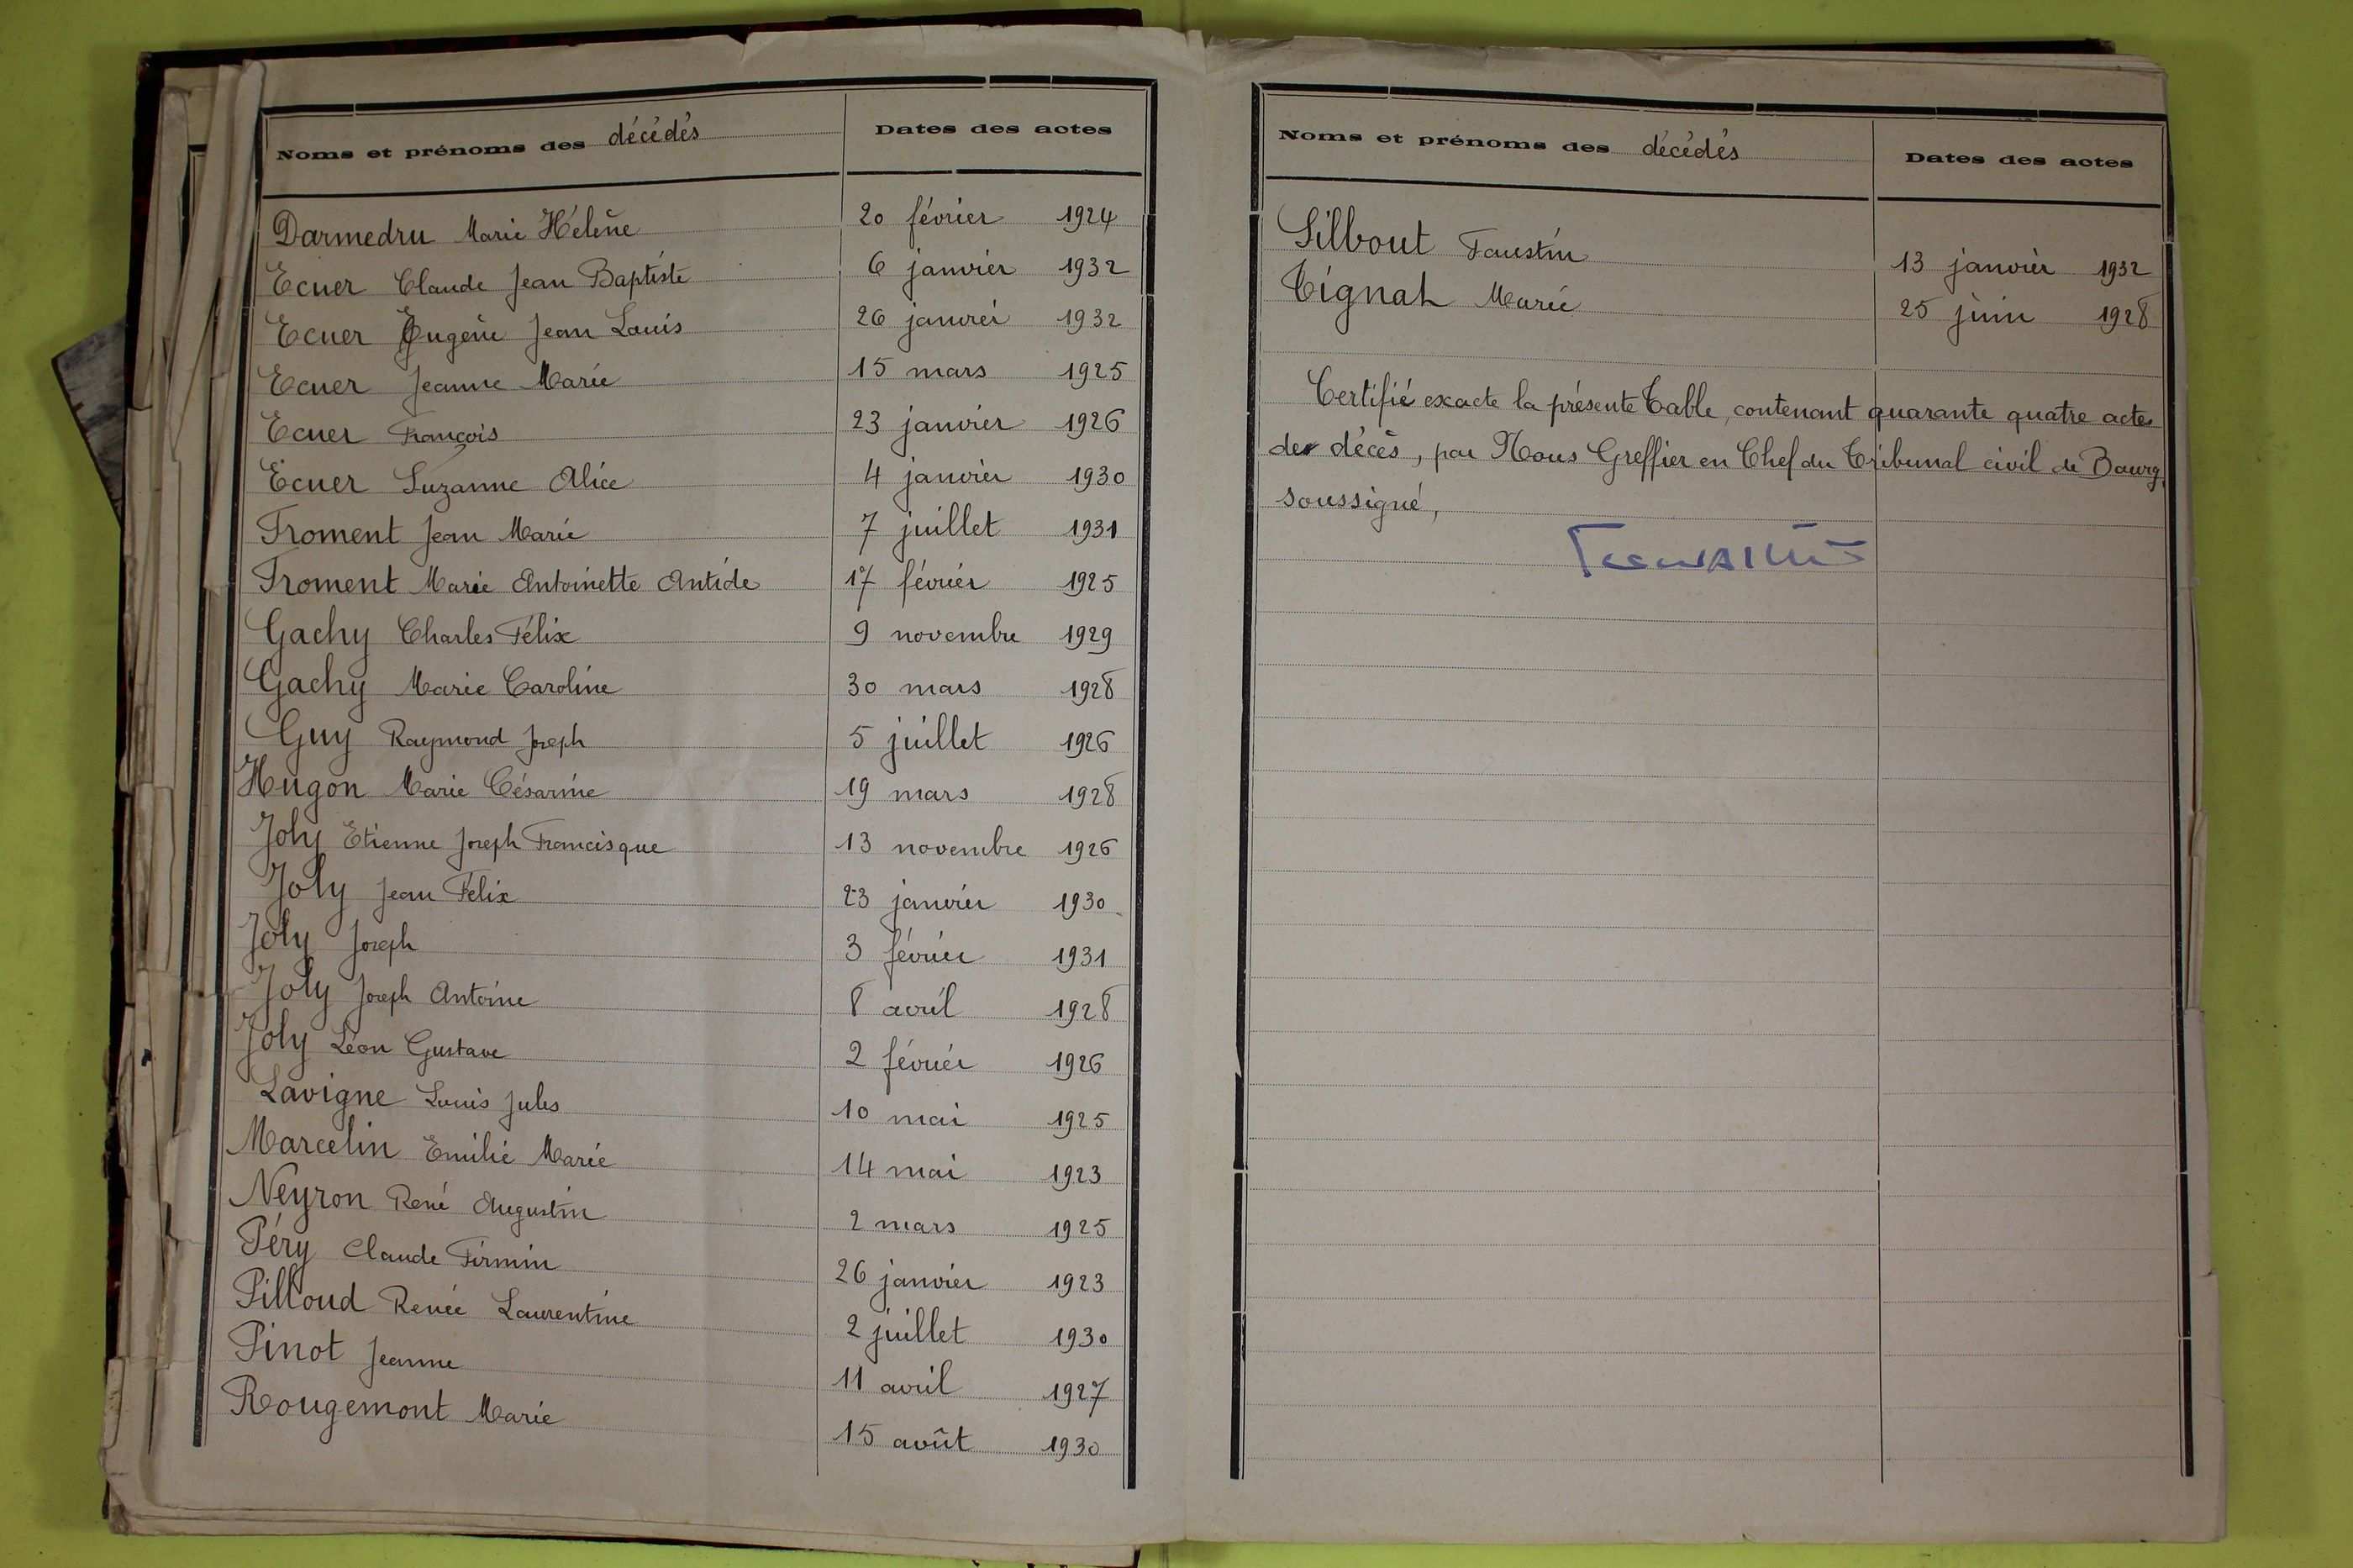 Noms et prénoms des décédés Dates des actes
Darmedru Marie Hélène 20 février 1924
Ecuer Claude Jean Baptiste 6 janvier 1932
Ecuer Eugène Jean Louis 26 janvier 1932
Ecuer Jeanne Marie 15 mars 1925
Ecuer François 23 janvier 1926
Ecuer Suzanne Alice 4 janvier 1930
Froment Jean Marie 7 juillet 1931
Froment Marie Antoinette Antide 17 février 1925
Gachy Charles Félix 9 novembre 1929
Gachy Marie Caroline 30 mars 1928
Guy Raymond Joseph 5 juillet 1926
Hugon Marie Césarine 19 mars 1928
Joly Etienne Joseph Francisque 13 novembre 1926
Joly Jean Félix 23 janvier 1930
Joly Joseph 3 février 1931
Joly Joseph Antoine 8 avril 1928
Joly Léon Gustave 2 février 1926
Lavigne Louis Jules 10 mai 1925
Marcelin Emilie Marie 14 mai 1923
Neyron René Augustin 2 mars 1925
Péry Claude Firmin 26 janvier 1923
Pilloud Renée Laurentine 2 juillet 1930
Pinot Jeanne 11 avril 1927
Rougemont Marie 15 août 1930
Noms et prénoms des décédés Dates des actes
Silbout Faustin 13 janvier 1932
Tignat Marie 25 juin 1928
Certifié exacte la présente Table, contenant quarante quatre actes
de décès, par Nous Greffier en Chef du Tribunal civil de Bourg
soussigné,